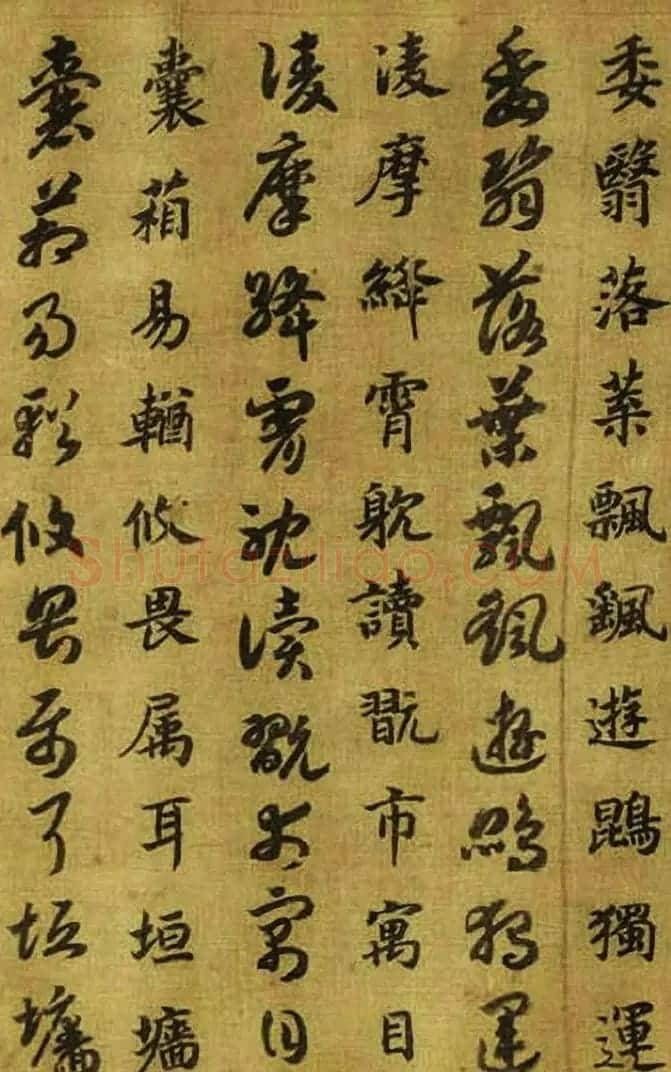 委翳落葉飄颻遊鵾獨運
委翳落葉飄颻遊鵾獨運
凌摩絳霄躭讀翫市寓目
凌摩絳霄耽讀翫市寓目
囊葙易輶攸畏属耳垣墻
囊箱易輶攸畏属耳垣墻
Shufaziliao.COM